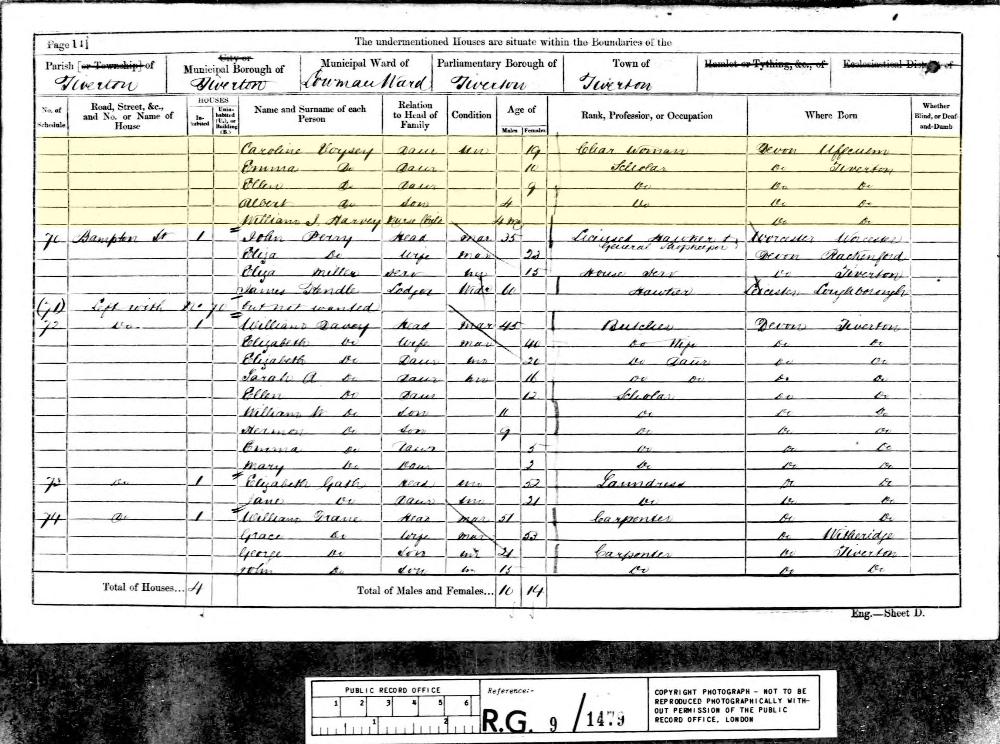 Page 11]
The undermentioned Houses are situate within the Boundaries of the
Parish [or Township] of
City or Municipal Borough of
Municipal Ward of
Parliamentary Borough of
Town of
Hamlet or Tything, &c., of
Ecclesiastical District of
Tiverton Tiverton Lowman Ward Tiverton Tiverton
No. of Schedule
Road, Street, &c., and No. or Name of House
HOUSES
Inhabited
Uninhabited (U.), or Building (B.)
Name and Surname of each Person
Relation to Head of Family
Condition
Age of
Males Females
Rank, Profession, or Occupation
Where Born
Whether Blind, or Deaf-and-Dumb
Caroline Voysey Daur Un 19 Char Woman Devon Uffculm
Emma Do Daur 10 Scholar Do Tiverton
Ellen Do Daur 9 Do Do Do
Albert Do Son 4 Do Do Do
William J. Harvey Nurse Child 4 mo Do Do
70 Bampton St 1 John Perry Head Mar 35 Licensed Hawker & General Shopkeeper Worcester Worcester
Eliza Do Wife Mar 23 Devon Rackenford
Eliza Miller Serv Un 15 House Serv Do Tiverton
James Lodger 60 Hawker Leicester Loughborough
(71) Left with No 70 but not wanted
72 Do 1 William Davey Head Mar 45 Butcher Devon Tiverton
Elizabeth Do Wife Mar 46 Do Wife Do Do
Elizabeth Do Daur Un 20 Do Daur Do Do
Sarah A Do Daur Un 16 Do Do Do Do
Ellen Do Daur 12 Scholar Do Do
William Do Son 11 Do Do Do
Hermon Do Son 9 Do Do Do
Emma Do Daur 5 Do Do Do
Mary Do Daur 2 Do Do Do
73 Do 1 Elizabeth Gath Head Un 52 Laundress Do Do
Jane Do Daur Un 21 Do Do Do
74 Do 1 William Head Mar 51 Carpenter Do Do
Grace Do Wife Mar 53 Do Witheridge
George Do Son Un 21 Carpenter Do Tiverton
John Do Son Un 15 Do Do Do
Total of Houses... 4 Total of Males and Females... 10 14
Eng.—Sheet D.
PUBLIC RECORD OFFICE
1 2 3 4 5 6
1 2
Reference:-
R.G. 9 / 1479
COPYRIGHT PHOTOGRAPH - NOT TO BE
REPRODUCED PHOTOGRAPHICALLY WITH-
OUT PERMISSION OF THE PUBLIC
RECORD OFFICE, LONDON